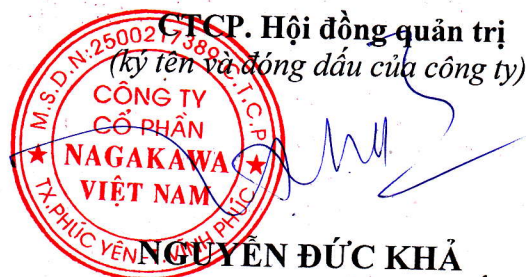 CTCP. Hội đồng quản trị
(ký tên và đóng dấu của công ty)
M.S.D.N:2500217389-C.T.C.P
CÔNG TY
CỔ PHẦN
NAGAKAWA
VIỆT NAM
TX.PHÚC YÊN - T.VĨNH PHÚC
NGUYỄN ĐỨC KHẢ